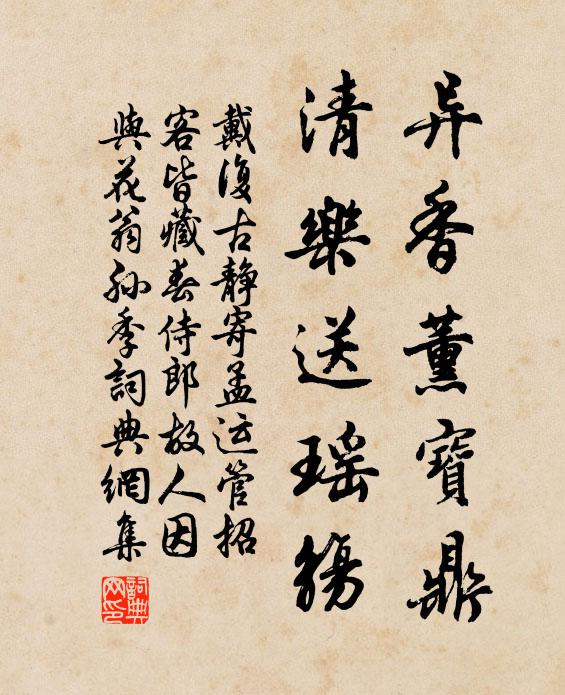 异香薰寶鼎
清樂送瑶觴
戴復古靜寄孟運管招
客皆藏春侍郎故人因
與花翁孫季詞典網集
詞典
网印